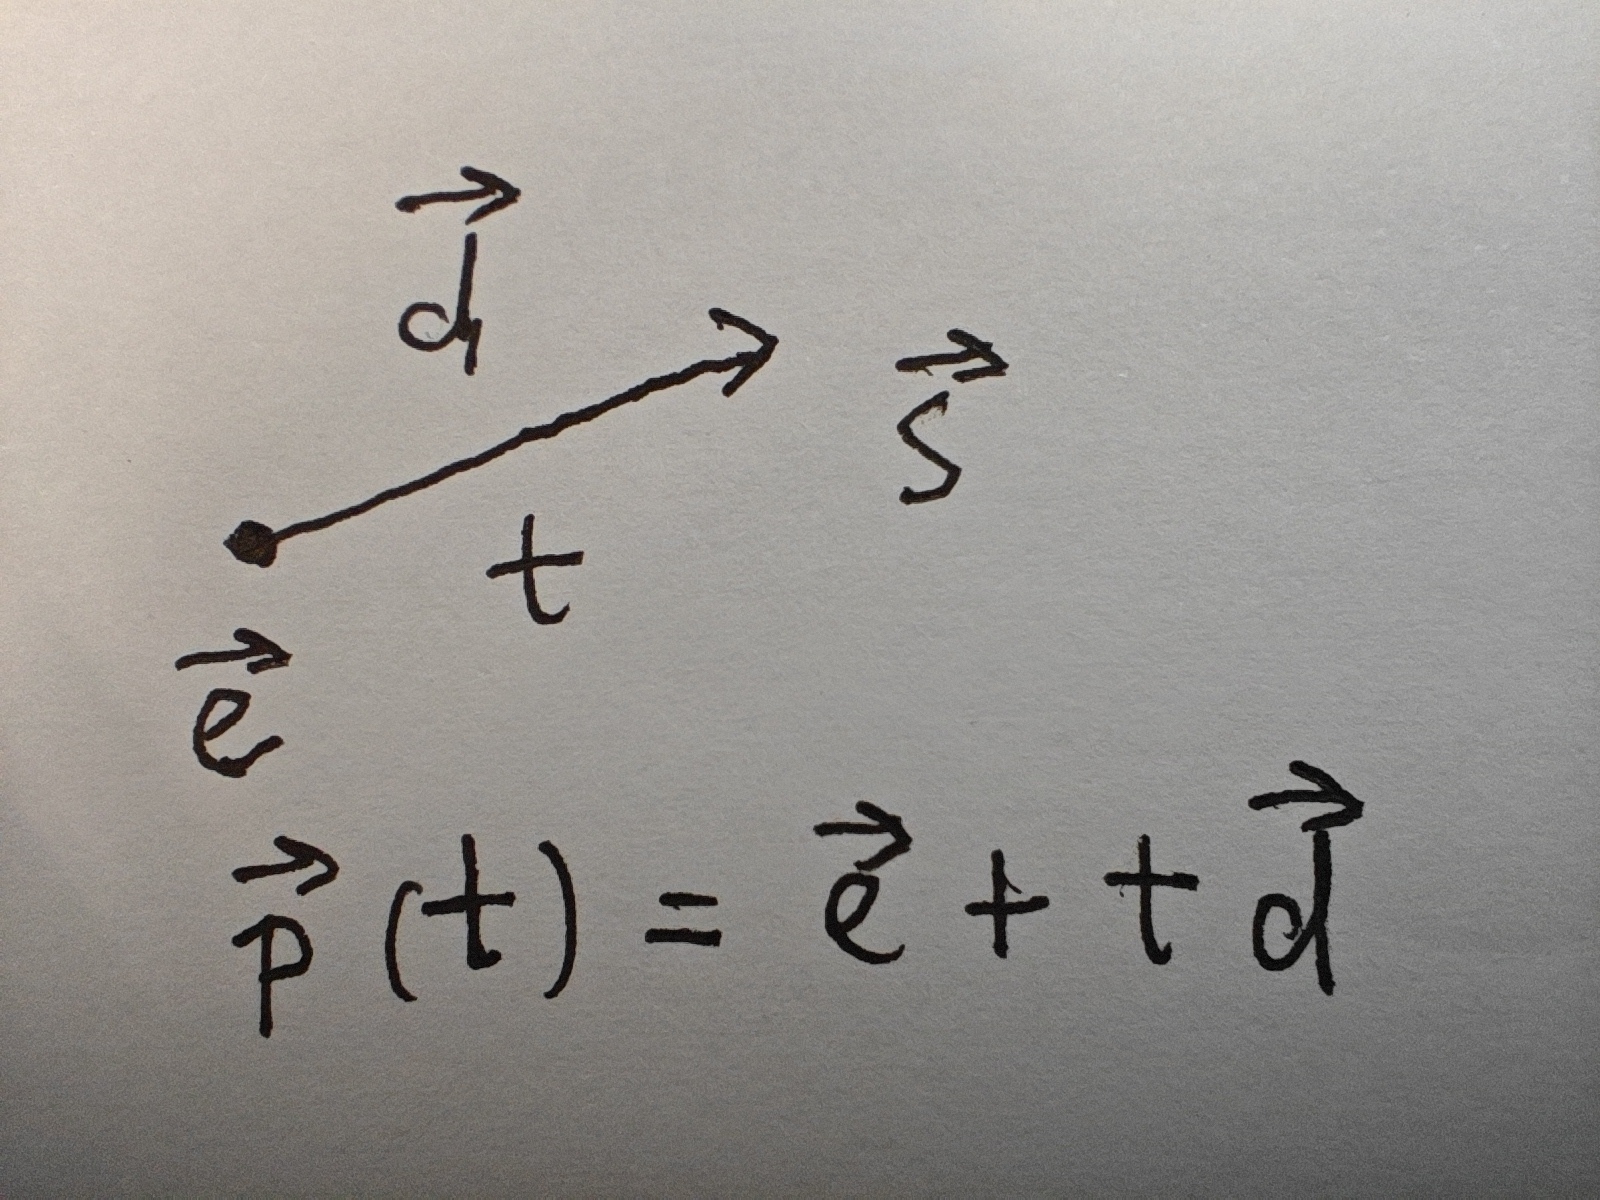 d⃗
s⃗
t
e⃗
p⃗ (t) = e⃗ + t d⃗